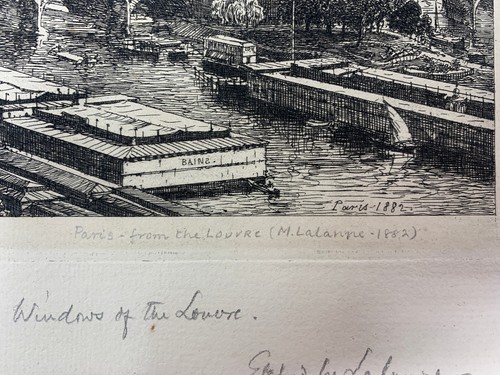 BAINS.
Paris-1882
Paris-from the Louvre (M. Lalanne-1882)
Windows of the Louvre.